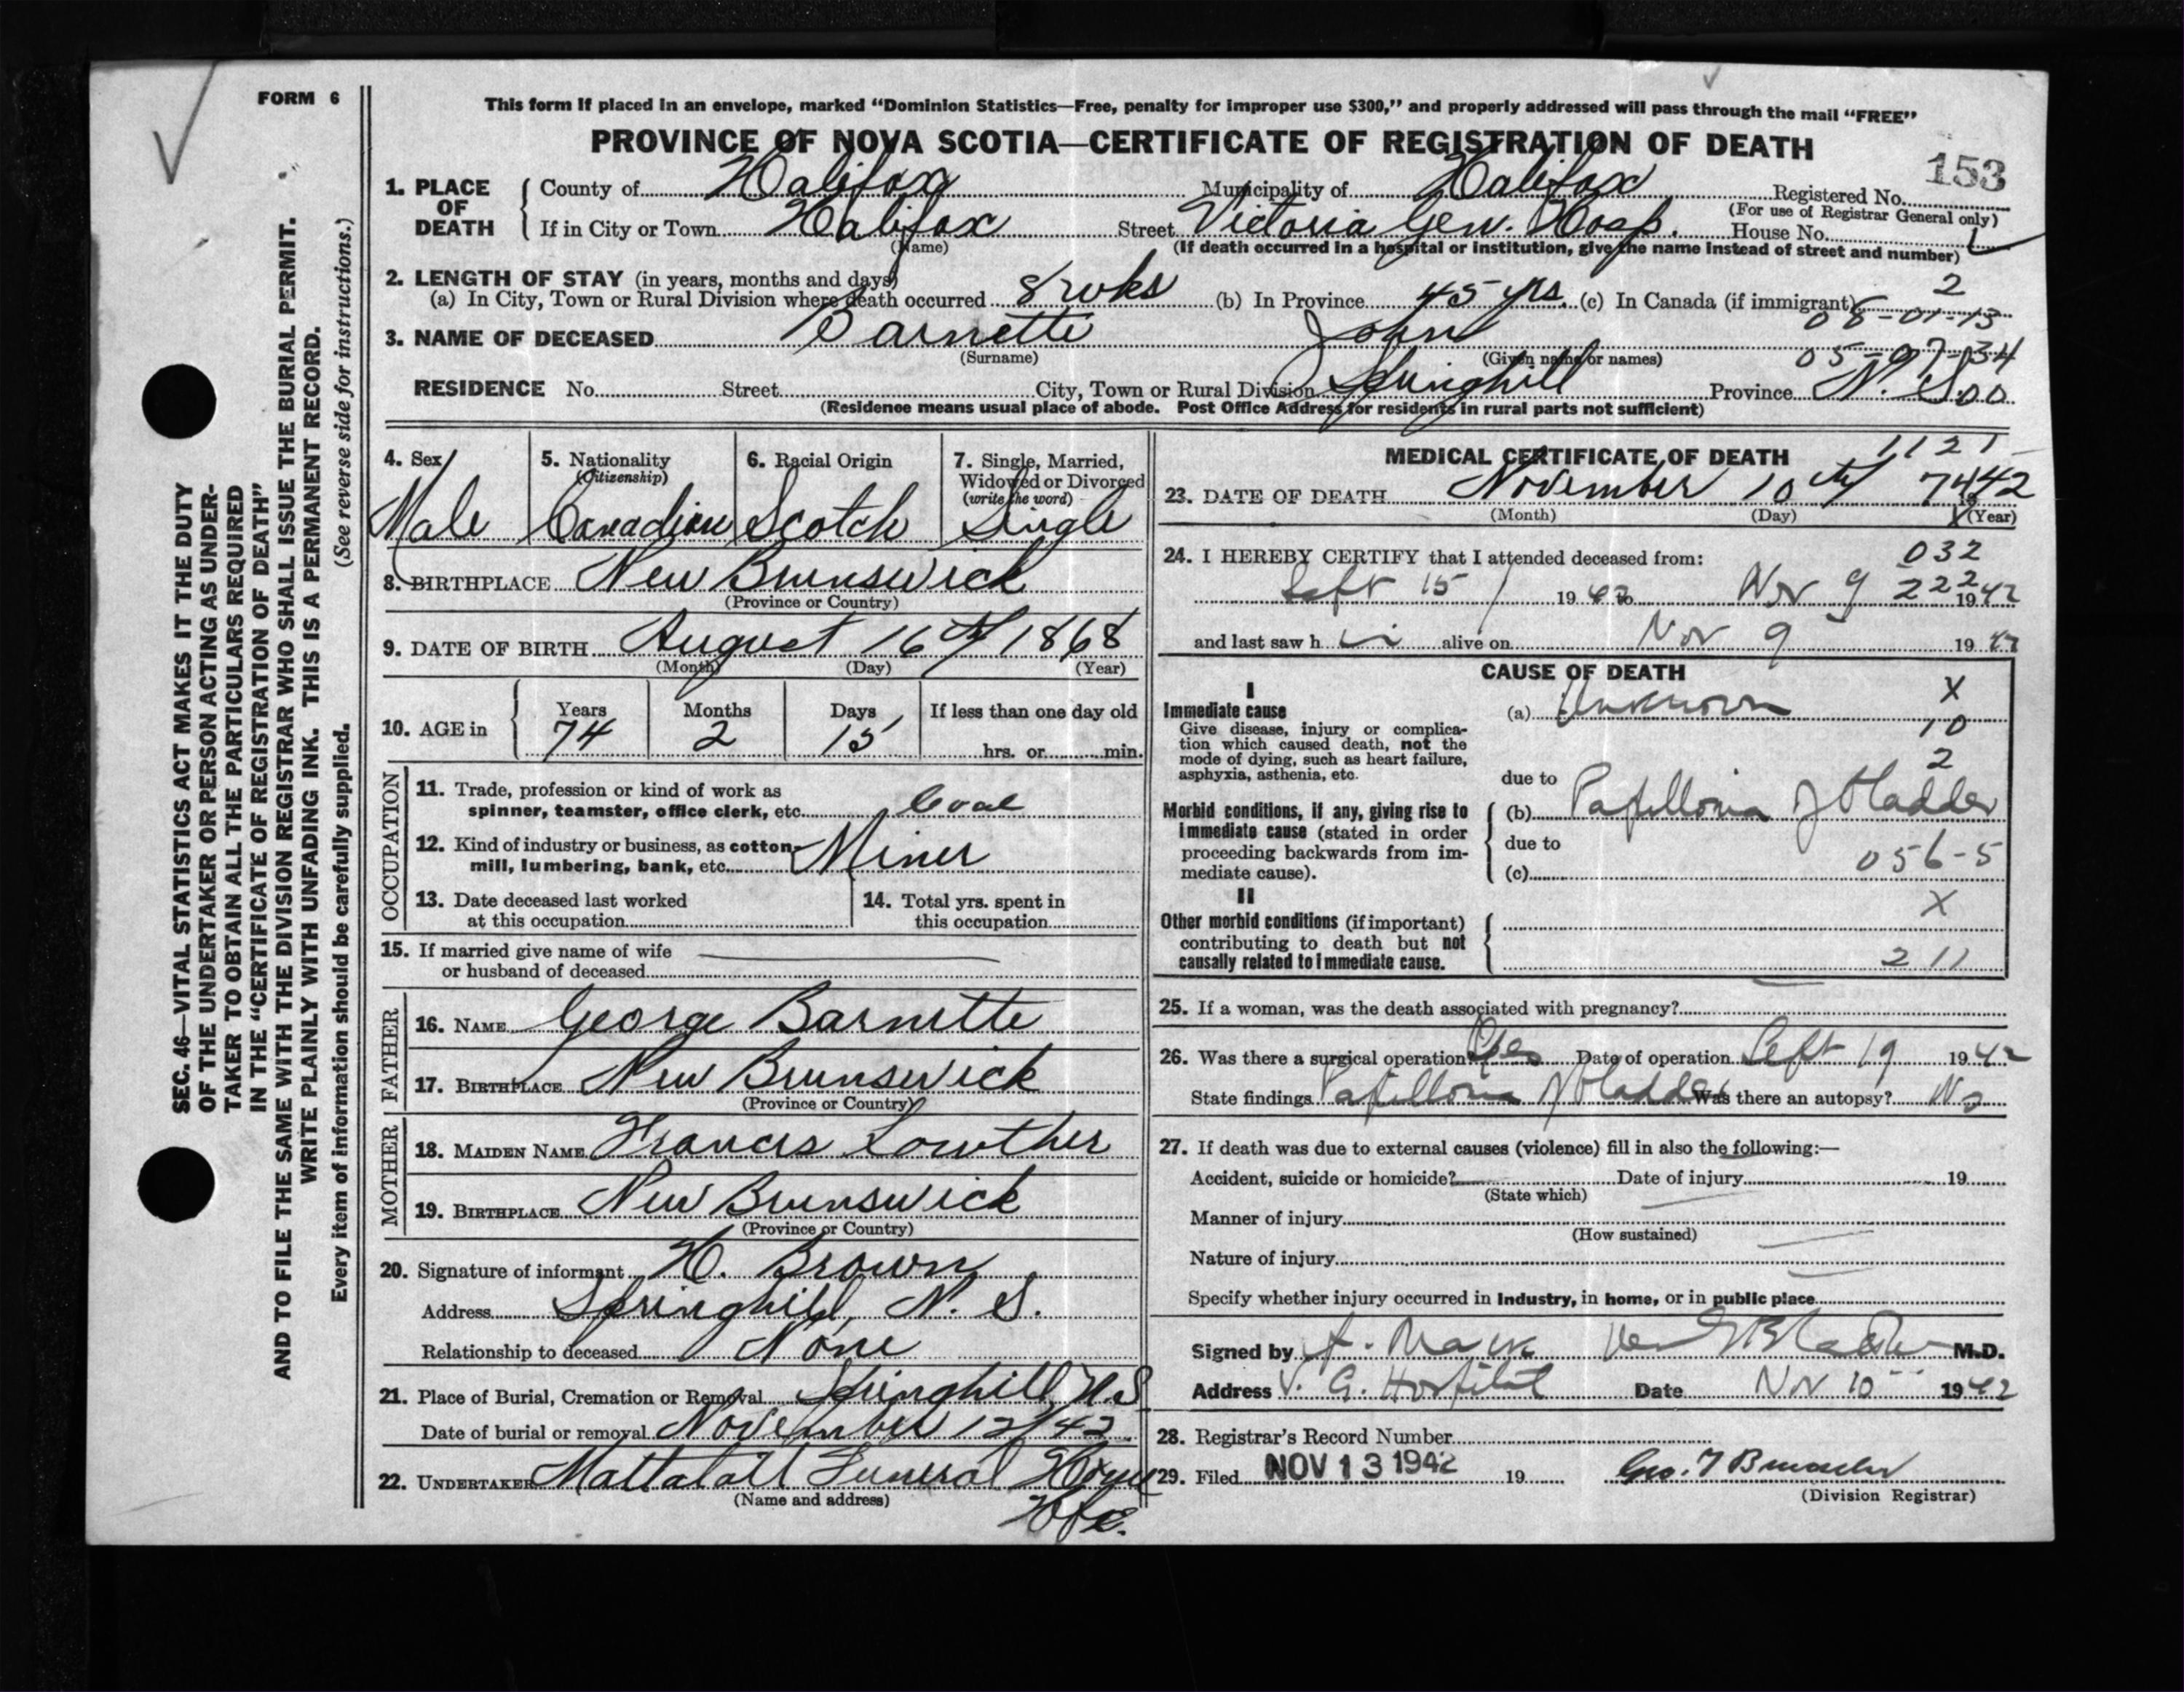 FORM 6
This form if placed in an envelope, marked “Dominion Statistics—Free, penalty for improper use $300,” and properly addressed will pass through the mail “FREE”
PROVINCE OF NOVA SCOTIA—CERTIFICATE OF REGISTRATION OF DEATH
153
1. PLACE OF DEATH
County of Halifax Municipality of Halifax Registered No.
(For use of Registrar General only)
If in City or Town Halifax Street Victoria Gen. Hosp. House No.
(Name) (If death occurred in a hospital or institution, give the name instead of street and number)
2. LENGTH OF STAY (in years, months and days)
(a) In City, Town or Rural Division where death occurred 8 wks (b) In Province 45 yrs. (c) In Canada (if immigrant)
2
08-01-13
3. NAME OF DECEASED Barnette John
(Surname) (Given name or names)
05-97-34
RESIDENCE No. Street City, Town or Rural Division Springhill Province N. S. 00
(Residence means usual place of abode. Post Office Address for residents in rural parts not sufficient)
4. Sex Male
5. Nationality (Citizenship) Canadian
6. Racial Origin Scotch
7. Single, Married, Widowed or Divorced (write the word) Single
8. BIRTHPLACE New Brunswick
(Province or Country)
9. DATE OF BIRTH August 16th 1868
(Month) (Day) (Year)
10. AGE in Years 74 Months 2 Days 15 If less than one day old
hrs. or min.
OCCUPATION
11. Trade, profession or kind of work as
spinner, teamster, office clerk, etc. Coal
12. Kind of industry or business, as cotton
mill, lumbering, bank, etc. Miner
13. Date deceased last worked
at this occupation
14. Total yrs. spent in
this occupation
15. If married give name of wife
or husband of deceased
FATHER
16. NAME George Barnette
17. BIRTHPLACE New Brunswick
(Province or Country)
MOTHER
18. MAIDEN NAME Francis Lowther
19. BIRTHPLACE New Brunswick
(Province or Country)
20. Signature of informant H. Brown
Address Springhill, N. S.
Relationship to deceased None
21. Place of Burial, Cremation or Removal Springhill, N.S.
Date of burial or removal November 12/42.
22. UNDERTAKER Mattatall Funeral Home
(Name and address)
Hfx.
MEDICAL CERTIFICATE OF DEATH
1121
23. DATE OF DEATH November 10th 1942
(Month) (Day) (Year)
24. I HEREBY CERTIFY that I attended deceased from:
032
Sept 15 1942 to Nov 9 1942
222
and last saw h im alive on Nov 9 1942
CAUSE OF DEATH
I
Immediate cause
Give disease, injury or complication which caused death, not the mode of dying, such as heart failure, asphyxia, asthenia, etc.
(a) Unknown
X
10
2
due to
Morbid conditions, if any, giving rise to immediate cause (stated in order proceeding backwards from immediate cause).
(b) Papilloma of Bladder
due to
(c) 056-5
II
X
Other morbid conditions (if important) contributing to death but not causally related to immediate cause.
211
25. If a woman, was the death associated with pregnancy?
26. Was there a surgical operation? Yes Date of operation Sept 19 1942
State findings Papilloma of Bladder Was there an autopsy? No
27. If death was due to external causes (violence) fill in also the following:—
Accident, suicide or homicide? Date of injury 19
(State which)
Manner of injury
(How sustained)
Nature of injury
Specify whether injury occurred in industry, in home, or in public place
Signed by M.D.
Address V. G. Hospital Date Nov 10 1942
28. Registrar's Record Number
29. Filed NOV 13 1942 19
(Division Registrar)
SEC. 46—VITAL STATISTICS ACT MAKES IT THE DUTY
OF THE UNDERTAKER OR PERSON ACTING AS UNDER-
TAKER TO OBTAIN ALL THE PARTICULARS REQUIRED
IN THE “CERTIFICATE OF REGISTRATION OF DEATH”
AND TO FILE THE SAME WITH THE DIVISION REGISTRAR WHO SHALL ISSUE THE BURIAL PERMIT.
WRITE PLAINLY WITH UNFADING INK. THIS IS A PERMANENT RECORD.
Every item of information should be carefully supplied. (See reverse side for instructions.)